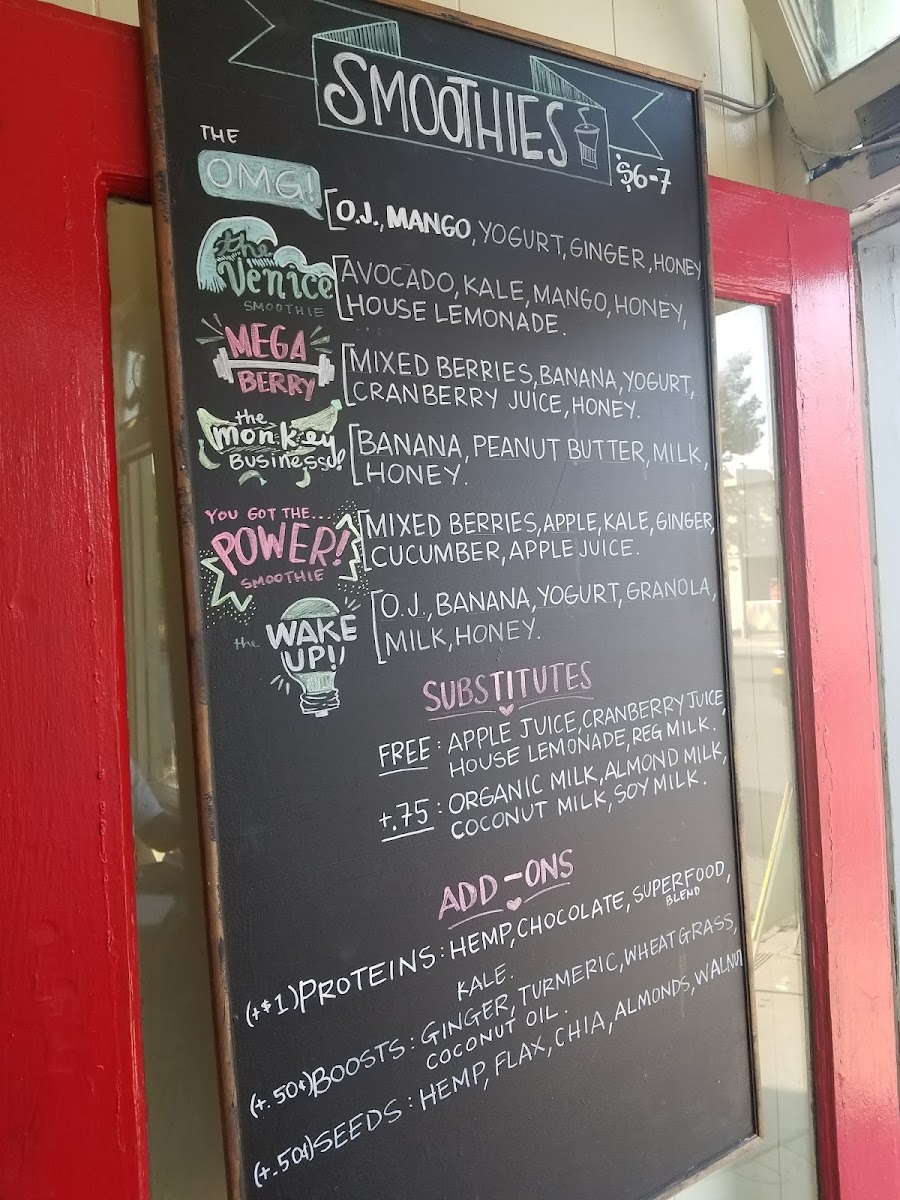 SMOOTHIES
$6-7
THE
OMG!
[O.J., MANGO, YOGURT, GINGER, HONEY
the
Venice
SMOOTHIE
[AVOCADO, KALE, MANGO, HONEY,
HOUSE LEMONADE.
MEGA
BERRY
[MIXED BERRIES, BANANA, YOGURT,
CRANBERRY JUICE, HONEY.
the
monkey
BUSINESS!
[BANANA, PEANUT BUTTER, MILK,
HONEY.
YOU GOT THE...
POWER!
SMOOTHIE
[MIXED BERRIES, APPLE, KALE, GINGER,
CUCUMBER, APPLE JUICE.
the WAKE
UP!!
[O.J., BANANA, YOGURT, GRANOLA,
MILK, HONEY.
SUBSTITUTES
FREE: APPLE JUICE, CRANBERRY JUICE,
HOUSE LEMONADE, REG MILK.
+.75: ORGANIC MILK, ALMOND MILK,
COCONUT MILK, SOY MILK.
ADD-ONS
(+$1) PROTEINS: HEMP, CHOCOLATE, SUPERFOOD,
BLEND
KALE.
(+.50¢) BOOSTS: GINGER, TURMERIC, WHEATGRASS,
COCONUT OIL.
(+.50¢) SEEDS: HEMP, FLAX, CHIA, ALMONDS, WALNUT